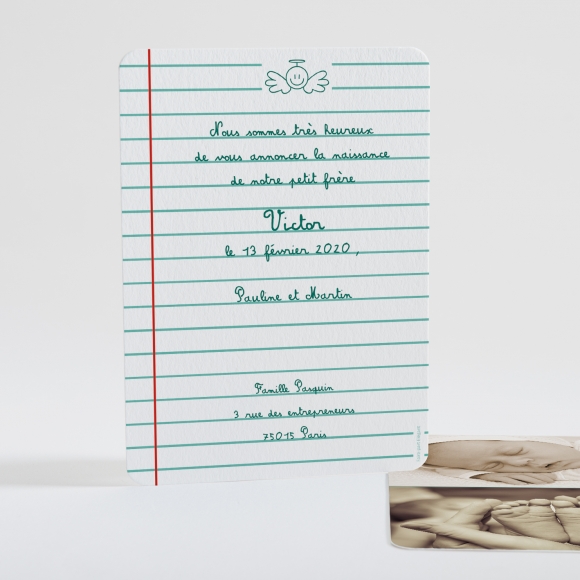 Nous sommes très heureux
de vous annoncer la naissance
de notre petit frère
Victor
le 13 février 2020,
Pauline et Martin
Famille Pasquin
3 rue des entrepreneurs
75015 Paris